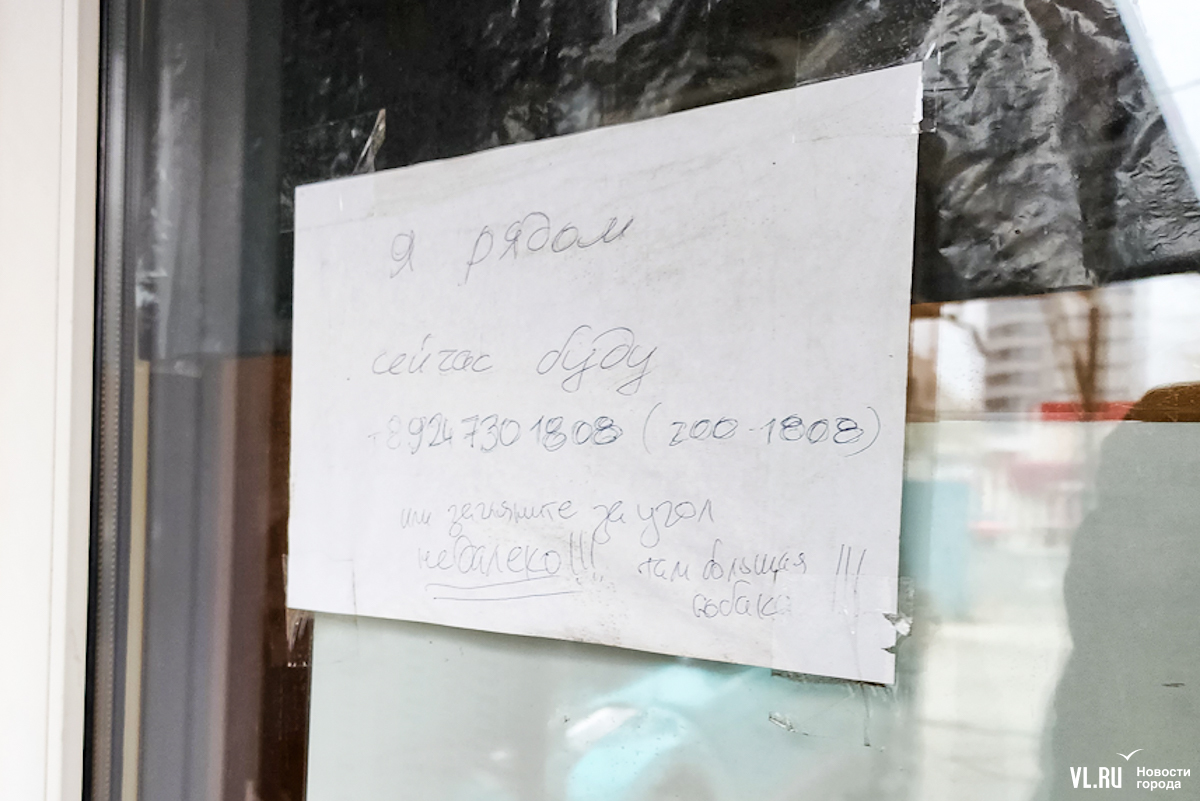 я рядом
сейчас буду
+8924 730 1808 (200-1808)
или загляните за угол
недалеко!!! там большая !!!
собака
VL.RU Новости
города